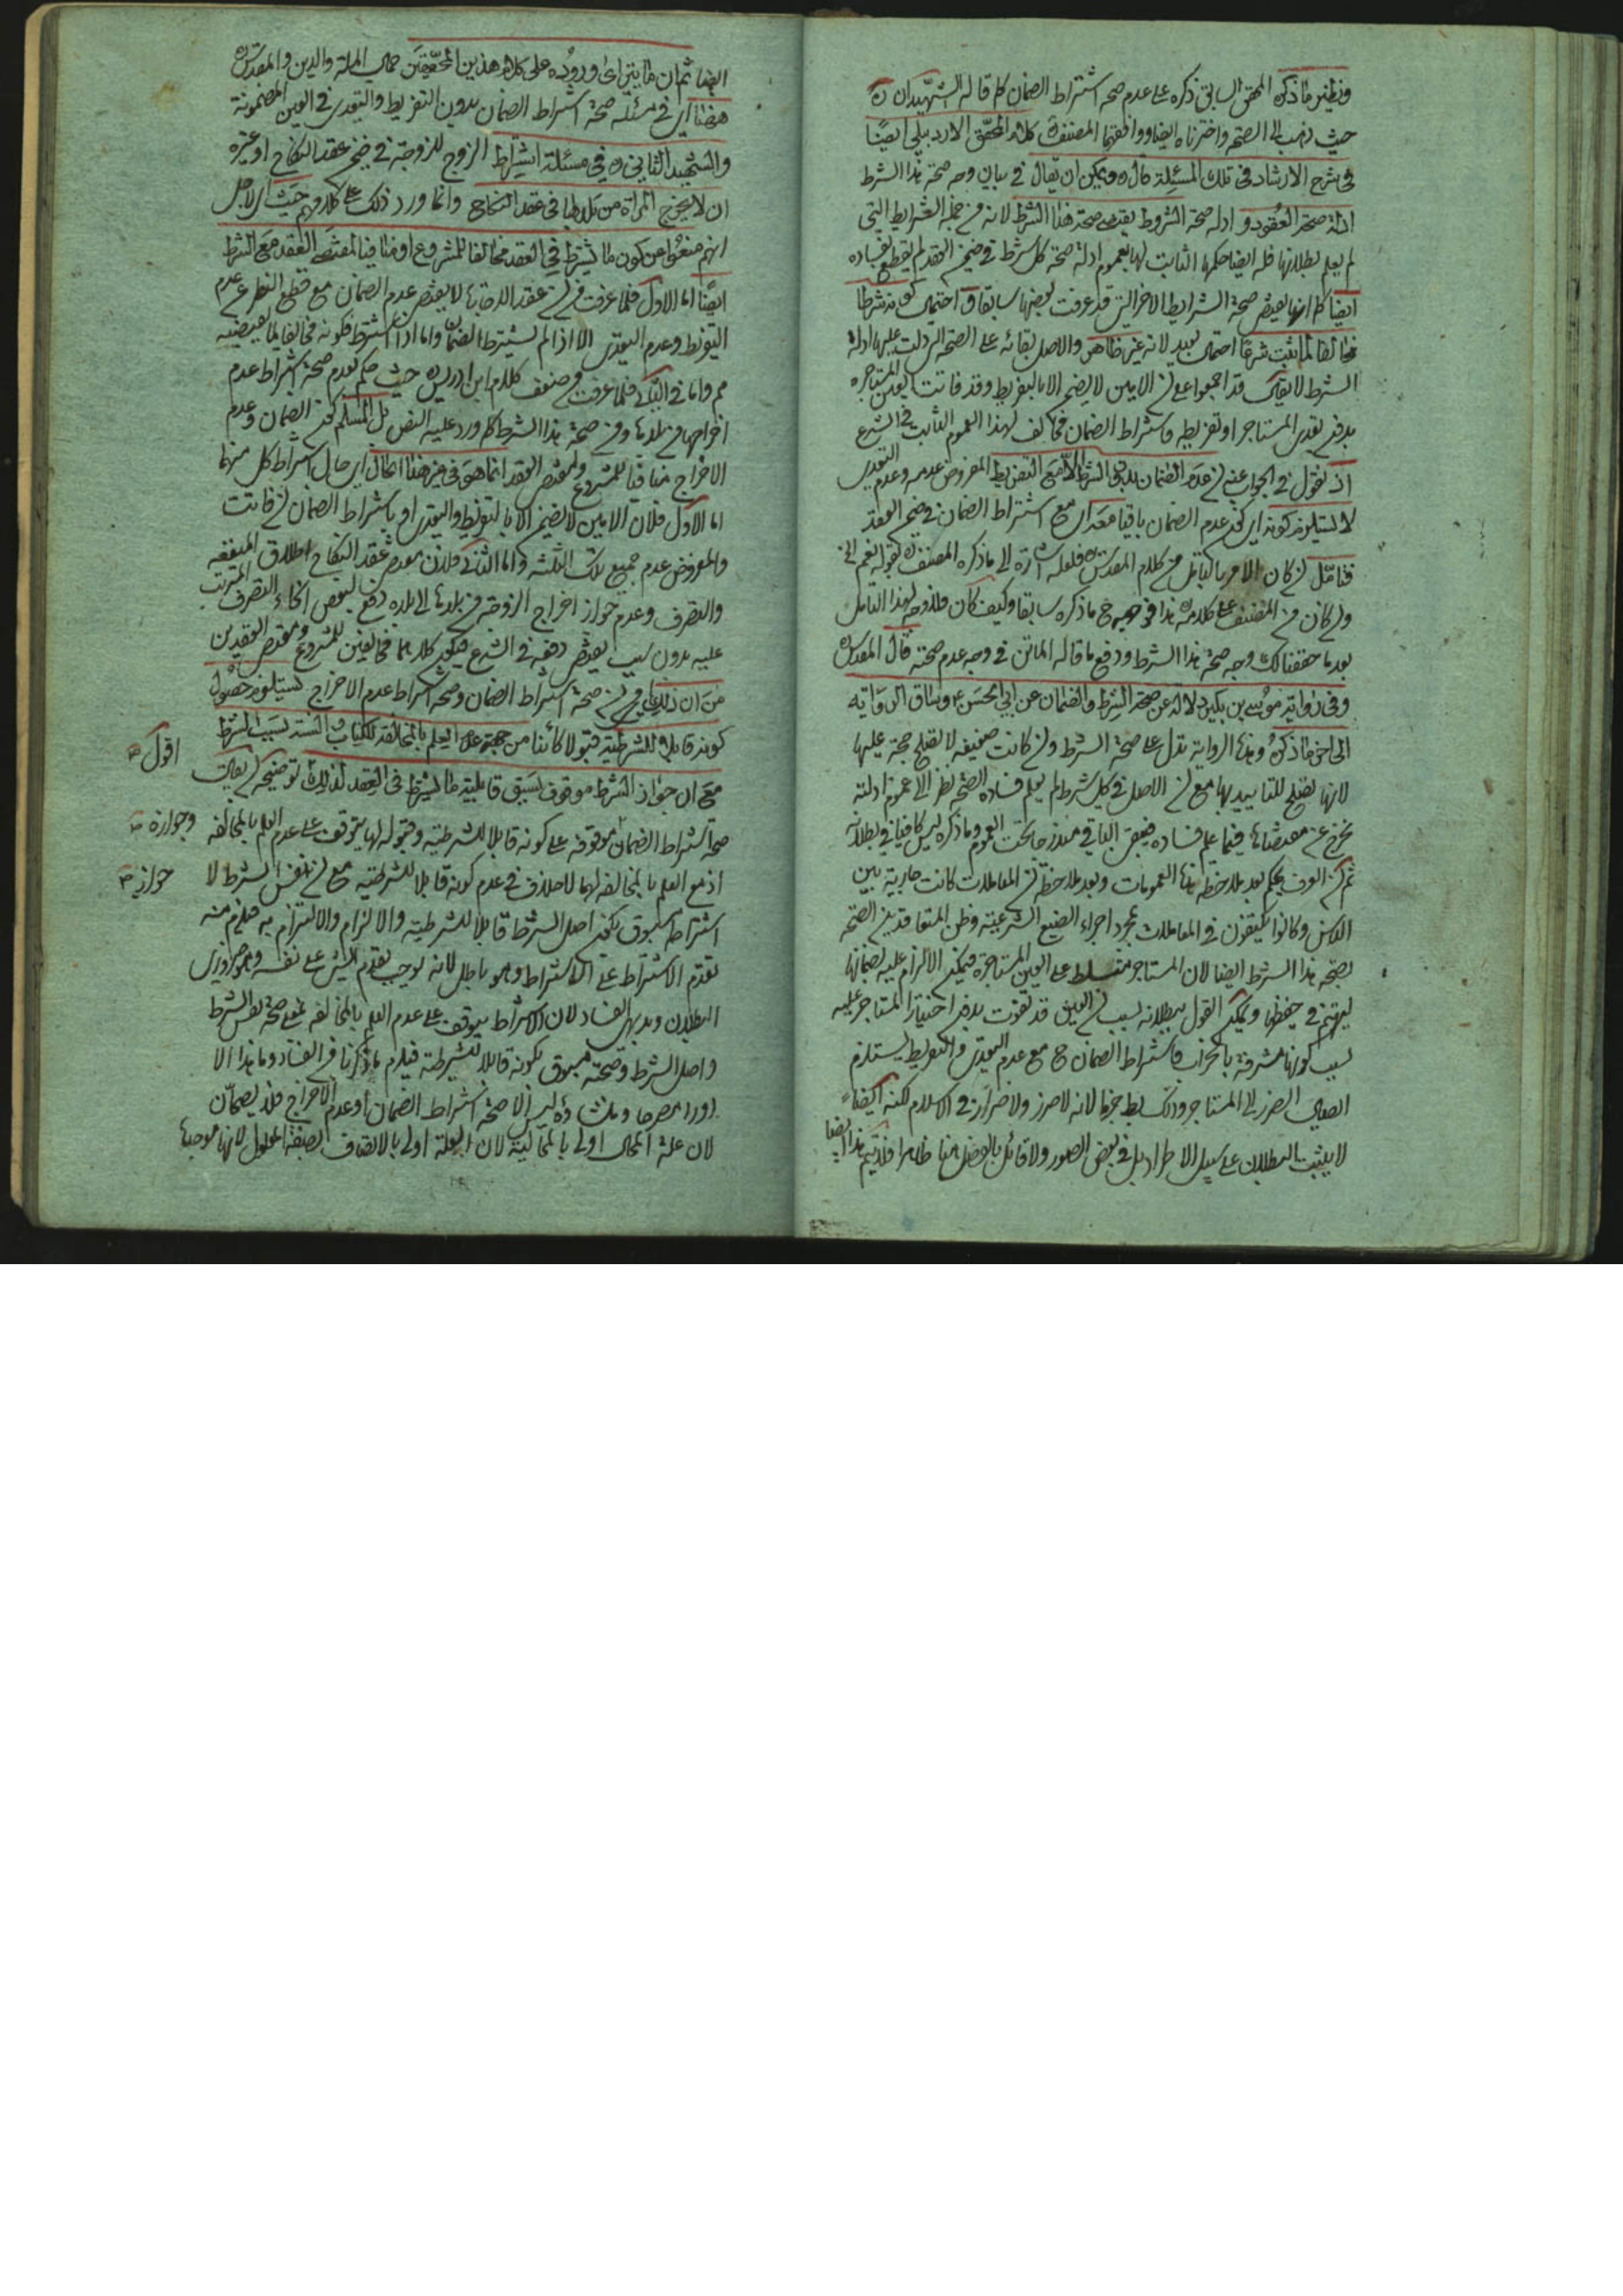 ونظير ما ذكره المحقق السابق ذكره على عدم صحة اشتراط الضمان كما قاله الشهيدان ره
حيث ذهب الى الصحة واخترناه ايضا ووافقهما المصنف كلام المحقق الاردبيلي ايضًا
في شرح الارشاد في تلك المسئلة قال ره ويمكن ان يقال في بيان وجه صحة هذا الشرط
ادلة صحة العقود و ادلة صحة الشروط يقتضي صحة هذا الشرط لانه من جملة الشرايط التي
لم يعلم بطلانها فله ايضا حكمها الثابت لها بعموم ادلة صحة كل شرط في ضمن العقد لم يقطع بفساده
ايضا كما انها يقتضي صحة الشرايط الاخر التي قد عرفت بعضها سابقا و احتمال كونه شرطا
مخالفا لما ثبت شرعًا احتمال بعيد لانه غير ظاهر والاصل بقائه على الصحة التي دلت عليها ادلة
الشرط لا يقال قد اجمعوا على ان الامين لا يضمن الا بالتفريط وقد فاتت العين المستاجره
بدون تعدي المستاجر او تفريطه واشتراط الضمان مخالف لهذا العموم الثابت في الشرع
اذ نقول في الجواب عنه ان عدم الضمان بدون الشرط الا مع التفريط المفروض عدمه وعدم التعدي
لا يستلزم كونه اي كون عدم الضمان باقيا معه اي مع اشتراط الضمان في ضمن العقد
فتامّل ان كان الامر بالتامل من كلام المقدس ره فلعله اشارة الى ما ذكره المصنف بقوله نعم الخ
وان كان من المصنف على كلامه هذا فوجهه ما ذكره سابقا وكيف كان فلا وجه لهذا التامل
بعد ما حققنا لك وجه صحة هذا الشرط ودفع ما قاله الماتن في وجه عدم صحته قال المقدس ره
وفي رواية موسى بن بكير دلالة عن صحة الشرط والضمان عن ابي الحسن ع وساق الرواية
الى اخر ما ذكره وهذه الرواية تدل على صحة الشرط وان كانت ضعيفة لا تصلح حجة عليها
لانها تصلح للتاييد بها مع ان الاصل في كل شرط لم يعلم فساده الصحة نظرا الى عموم ادلته
نخرج عن مقتضاها فيما علم فساده فيبقى الباقي مندرجا تحت العموم وما ذكره ليس كافيا في بطلانه
ثم ان العرف يحكم بعد ملاحظة هذه العمومات وبعد ملاحظة ان المعاملات كانت جارية بين
الناس وكانوا يكتفون في المعاملات بمجرد اجراء الصيغ الشرعية وظن المتعاقدين الصحة
بصحة هذا الشرط ايضا لان المستاجر متسلط على العين المستاجرة فيمكن الالزام عليه بضمانها
ليهتم في حفظها ويمكن القول ببطلانه بسبب ان العين قد تفوت بدون اختيار المستاجر عليه
بسبب كونها مشرفة بالخراب فاشتراط الضمان ح مع عدم التعدي والتفريط يستلزم
ايصال الضرر الى المستاجر وذلك بط جزما لانه لا ضرر ولا ضرار في الاسلام لكنه ايضا
لا يثبت البطلان على سبيل الاطراد بل في بعض الصور ولا قائل بالفصل هنا ظاهرا فلا يتم هذا ايضا
ايضا ثم ان ما يتراى وروده على كلام هذين المحققين جمال الملة والدين والمقدس ره
هنا اي في مسئلة صحة اشتراط الضمان بدون التفريط والتعدي في العين المضمونة
والشهيد الثاني ره في مسئلة اشتراط الزوج للزوجة في ضمن عقد النكاح او غيره
ان لا يخرج المراة من بلدها في عقد النكاح وانما ورد ذلك على كلامهم حيث اي لاجل
انهم منعوا عن كون ما يشترط في العقد مخالفا للمشروع او منافيا لمقتضى العقد مع الشرط
ايضًا اما الاول فلما عرفت من ان عقد الاجارة لا يقتضي عدم الضمان مع قطع النظر عن عدم
التفريط وعدم التعدي الا اذا لم يشترط الضمان واما اذا اشترط فكونه مخالفا لما يقتضيه
مم واما في الثاني فلما عرفت من ضعف كلام ابن ادريس حيث حكم بعدم صحة اشتراط عدم
اخراجها من بلدها ومن صحة هذا الشرط كما ورد عليه النص بل المسلم كون الضمان وعدم
الاخراج منافيا للمشروع ولمقتضى العقد انما هو في غير هذا الحال اي حال اشتراط كل منهما
اما الاول فلان الامين لا يضمن الا بالتفريط والتعدي او باشتراط الضمان ان فاتت
والمفروض عدم جميع تلك الثلثة واما الثاني فلان مقتضى عقد النكاح اطلاق المنفعة
والتصرف وعدم جواز اخراج الزوجة من بلدها الى بلده دفع لبعض انحاء التصرف المترتب
عليه بدون سبب يقتضي دفعه في الشرع فيكون كلاهما مخالفين للمشروع ومقتضى العقدين
من ان ذلك اي صحة اشتراط الضمان وصحة اشتراط عدم الاخراج يستلزم حصول
كونه قابلا للشرطية قبولا كائنا من جهة عدم العلم بالمخالفة للكتاب والسنة بسبب الشرط
مع ان جواز الشرط موقوف بسبق قابلية ما يشترط في العقد لذلك توضيحه ان يقال
اقول ص
صحة اشتراط الضمان موقوفة على كونه قابلا للشرطية وقبوله لها يتوقف على عدم العلم بالمخالفة
وجوازه ص
اذ مع العلم بالمخالفة لهما لا خلاف في عدم كونه قابلا للشرطية مع ان نفس الشرط لا
جواز ص
اشتراطه مسبوق بكون اصل الشرط قابلا للشرطية والالزام والالتزام به فيلزم منه
تقدم الاشتراط على الاشتراط وهو باطل لانه يوجب تقدم الشئ على نفسه وهو ضروري
البطلان وبديهي الفساد لان الاشتراط يتوقف على عدم العلم بالمخالفة لمعنى صحة نفس الشرط
واصل الشرط وصحته مسبوق بكونه قابلا للشرطية فيلزم ما ذكرنا من الفساد وما هذا الا
دورا مصرحا ومنشاؤه ليس الا صحة اشتراط الضمان او عدم الاخراج فلا يصحان
لان علة المحال اولى بالمحالية لان العلة اولى بالاتصاف بصفة المعلول لانها موجبها